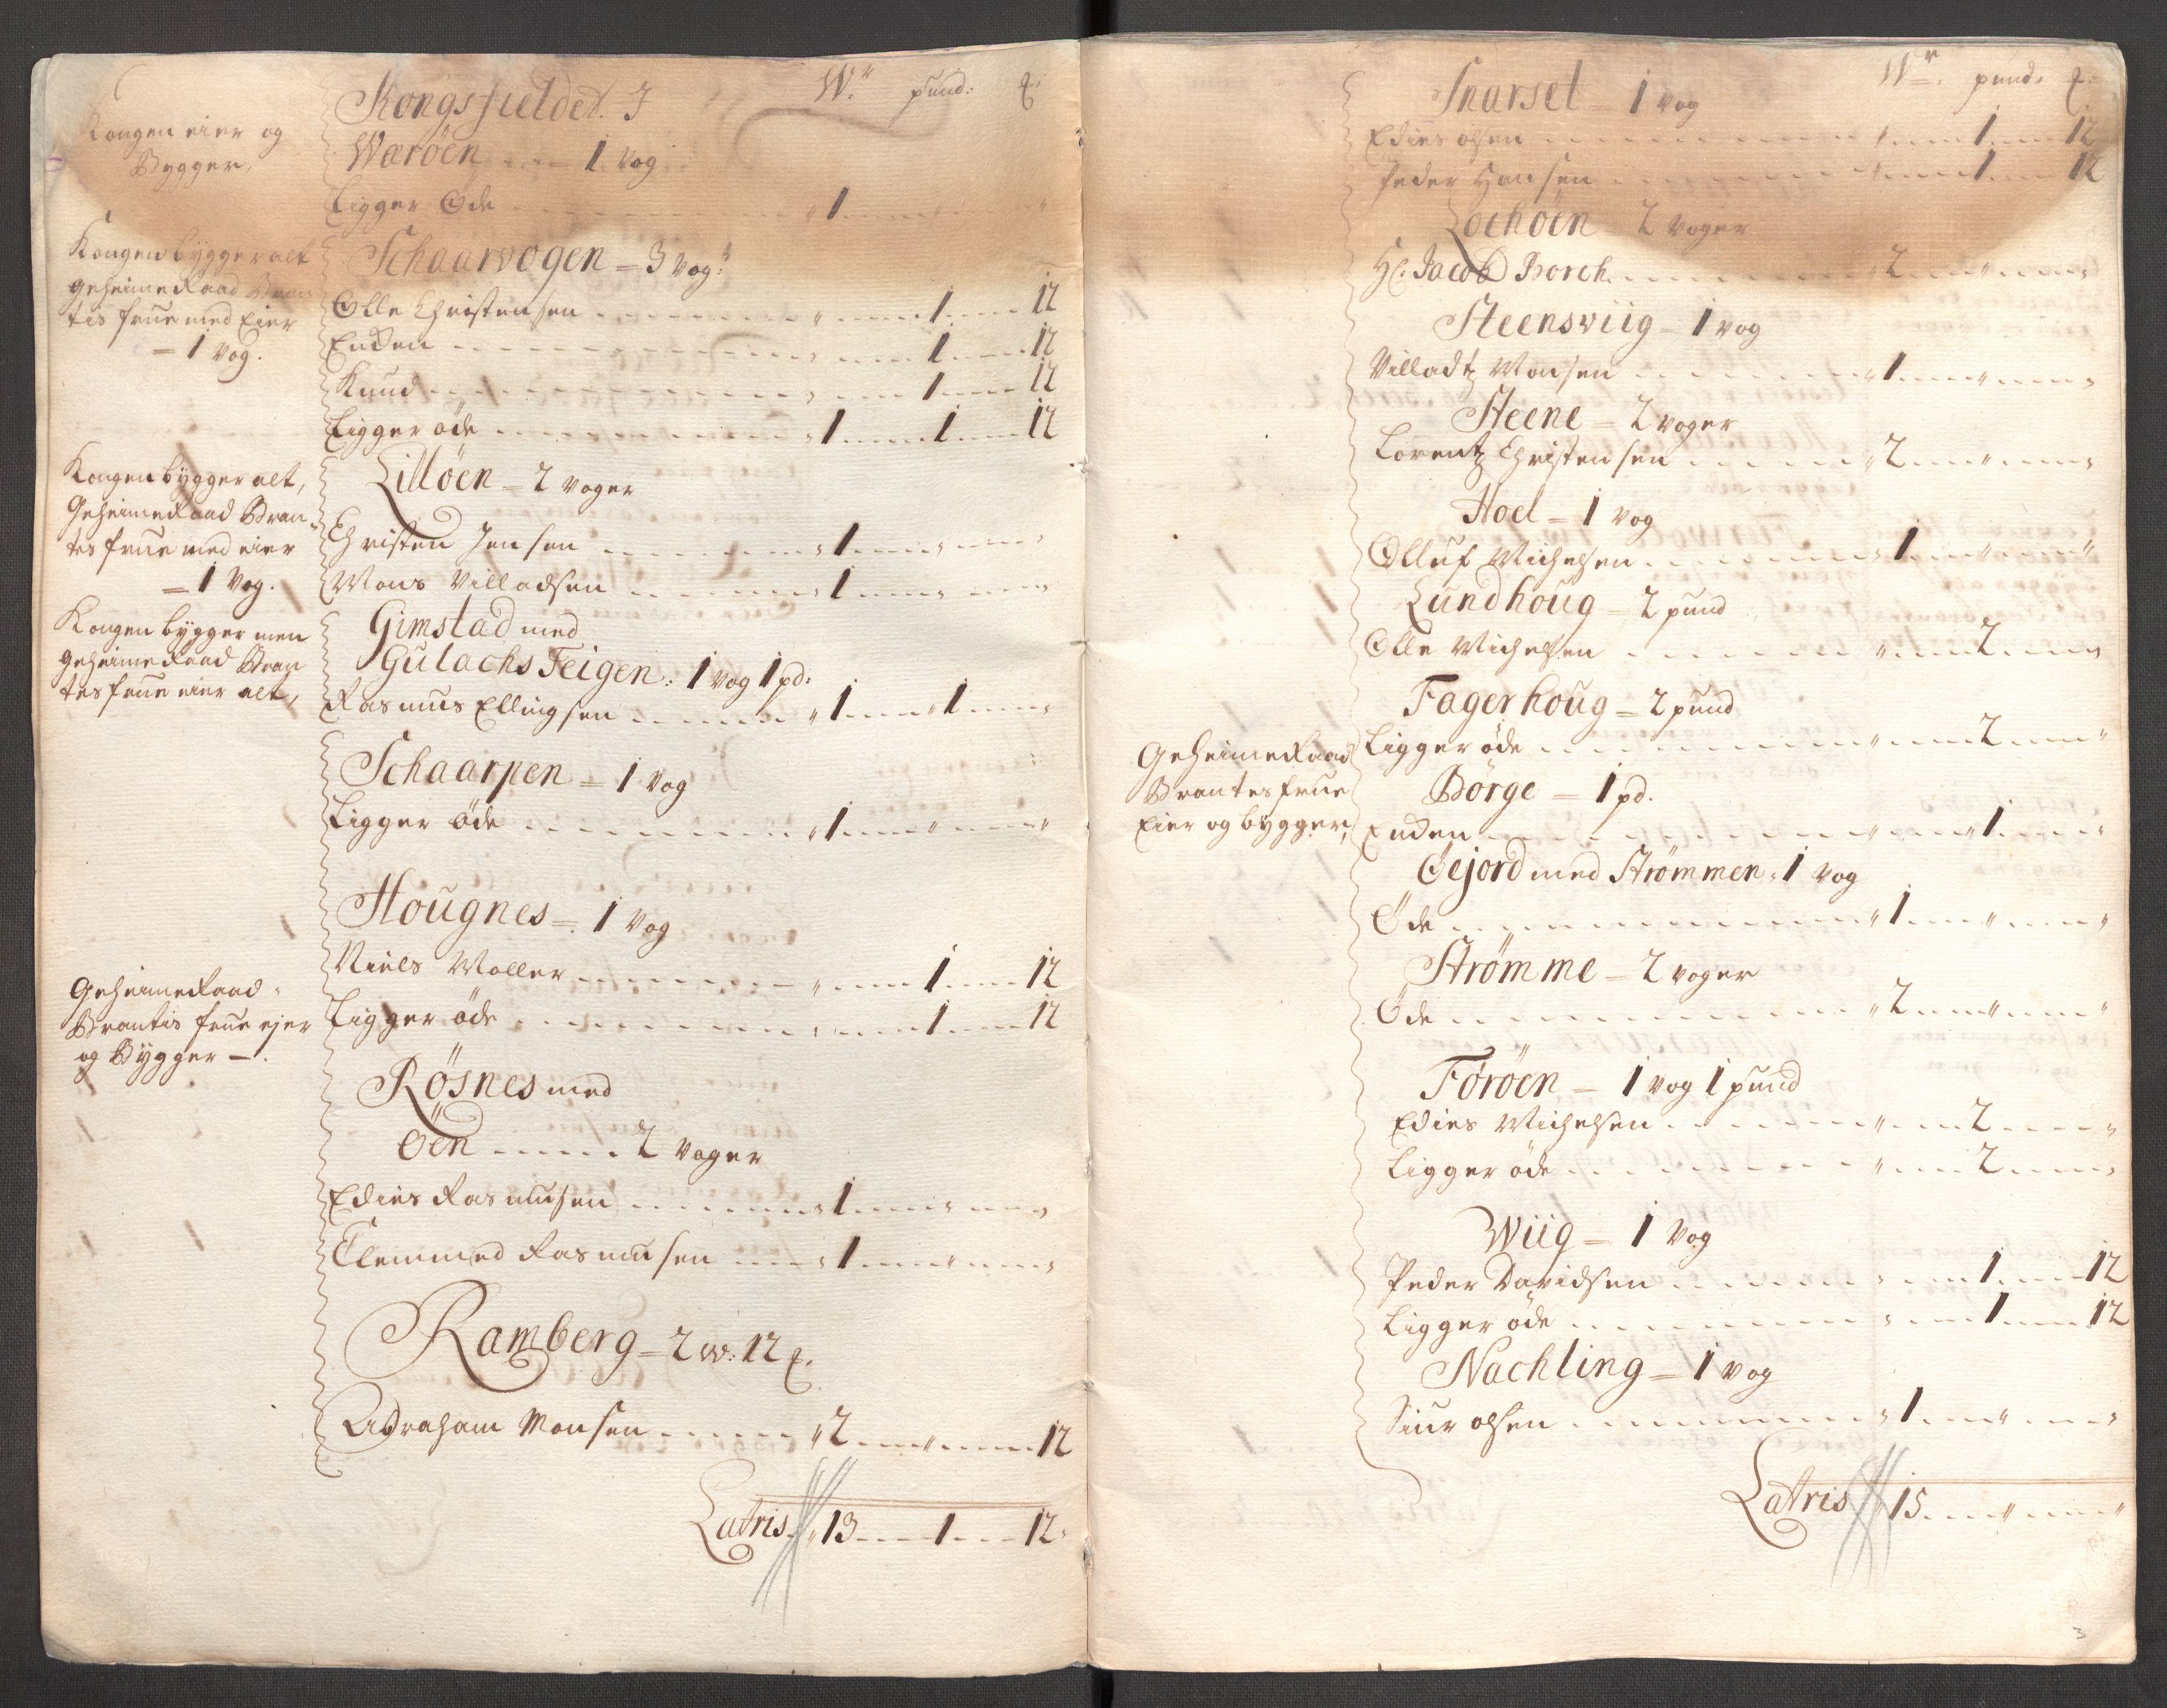 W.r pund: ℔.
Kongsfieldet. I
Kongen eier og
Bygger,
Waröen - - - 1 Vog
Ligger Öde - - - " 1 - - -
Kongen bygger alt
geheimeRaad Bran
tis frue med Eier
= 1 Vog.
Schaarvogen = 3 vog:
Olle Christensen - - - " - - - 1 - - - 12
Enden - - - " - - - 1 - - - 12
Knud - - - " - - - 1 - - - 12
Ligger öde - - - " 1 - - - 1 - - - 12
Kongen bygger alt,
GeheimeRaad Bran-
tes frue med eier
= 1 Vog.
Lillöen = 2 voger
Christen Jensen - - - " 1 - - - " - - - "
Mons Villadsen - - - " 1 - - - " - - - "
Kongen bygger men
geheimeRaad Bran
tes frue eier alt,
Gimstad med
Gulachs Teigen: 1 vog 1 pd:
Rasmus Ellingsen - - - " 1 - - - 1 - - - "
Schaarpen = 1 Vog
Ligger öde - - - " 1 - - - " - - - "
Hougnes =. 1 Vog
Niels Moller - - - " - - - 1 - - - 12
Ligger öde - - - " - - - 1 - - - 12
GeheimeRaad
Brantis frue ejer
og Bygger —.
Rösnes med
Öen - - - 2 Voger
Edies Rasmusen - - - " 1 - - - " - - - "
Clemmed Rasmusen - - - " 1 - - - " - - - "
Ramberg = 2 w: 12 ℔.
Abraham Monsen - - - " 2 - - - " - - - 12
Latris " 13 - - - 1 - - - 12 "
W.r pund: ℔.
Snarset = 1 vog
Edies olsen - - - " - - - 1 - - - 12
Peder Hansen - - - " - - - 1 - - - 12
Lochöen = 2 Voger
Hr. Jacob Borch - - - " 2 - - - " - - - "
Steensviig = 1 vog
Villadtz Monsen - - - " 1 - - - " - - - "
Steene = 2 voger
Lorentz Christensen - - - " 2 - - - " - - - "
Hoel = 1 vog
Olluf Michelsen - - - " 1 - - - " - - - "
Lundhoug = 2 pund
Olle Michelsen - - - " - - - 2 - - - "
Fagerhoug = 2 pund
Ligger öde - - - " - - - 2 - - - "
GeheimeRaad
Brantes frue
Eier og bygger,
Börge = 1 pd.
Enden - - - " - - - 1 - - - "
Öejord med Strömmen = 1 vog
Öde - - - " 1 - - - " - - - "
Strömme = 2 voger
Öde - - - " 2 - - - " - - - "
Föröen = 1 vog 1 pund
Edies Michelsen - - - " - - - 2 - - - "
Ligger öde - - - " - - - 2 - - - "
Wiig = 1 Vog
Peder Davidsen - - - " - - - 1 - - - 12
Ligger öde - - - " - - - 1 - - - 12
Nachling = 1 vog
Siur olsen - - - " 1 - - - " - - - "
Latris " 15 - - - " - - - "
3